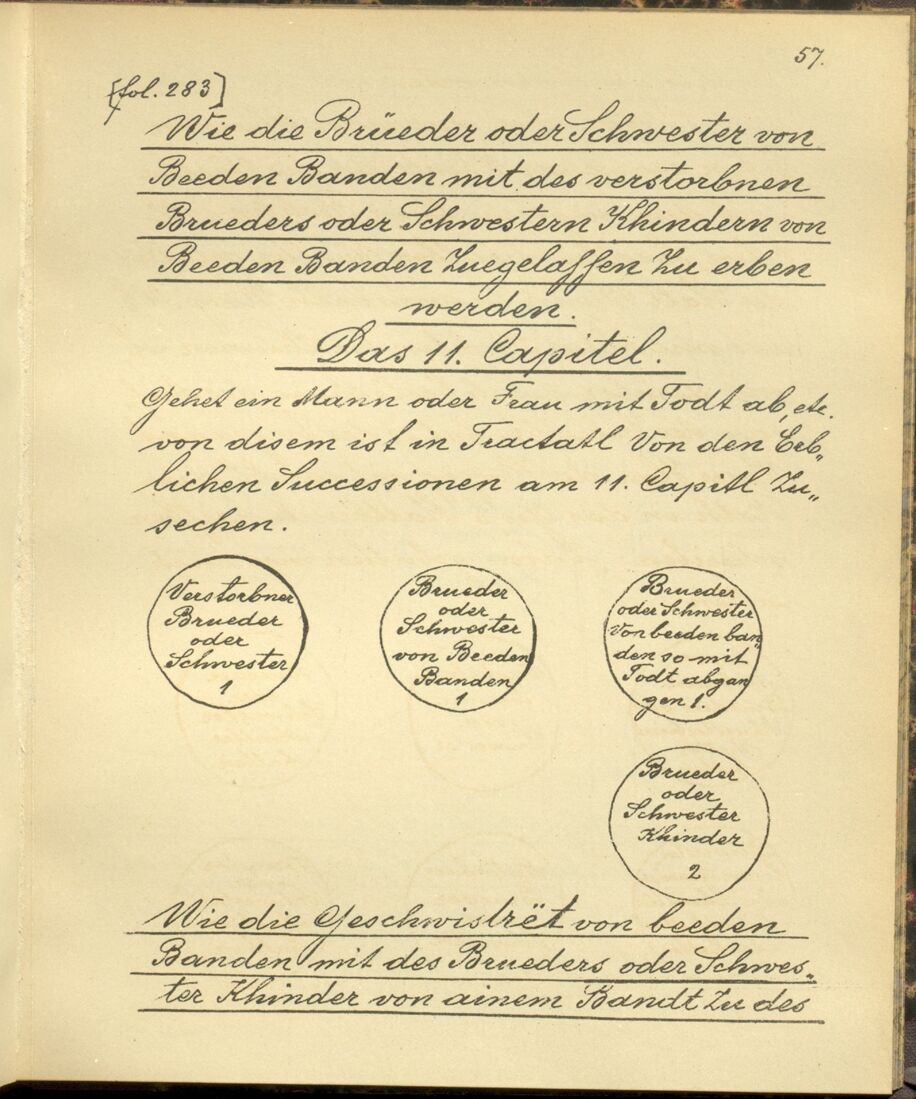 57.
[fol. 283]
Wie die Brüeder oder Schwester von
Beeden Banden mit des verstorbnen
Brueders oder Schwestern Khindern von
Beeden Banden Zuegelassen Zu erben
werden.
Das 11. Capitel.
Gehet ein Mann oder Frau mit Todt ab, etc.
von disem ist in Tractatl Von den Erb„
lichen Successionen am 11. Capitl Zu„
sechen.
Verstorbner
Brueder
oder
Schwester
1
Brueder
oder
Schwester
von Beeden
Banden
1
Brueder
oder Schwester
Von beeden ban„
den so mit
Todt abgan
gen 1.
Brueder
oder
Schwester
Khinder
2
Wie die Geschwistrët von beeden
Banden mit des Brueders oder Schwes„
ter Khinder von ainem Bandt Zu des